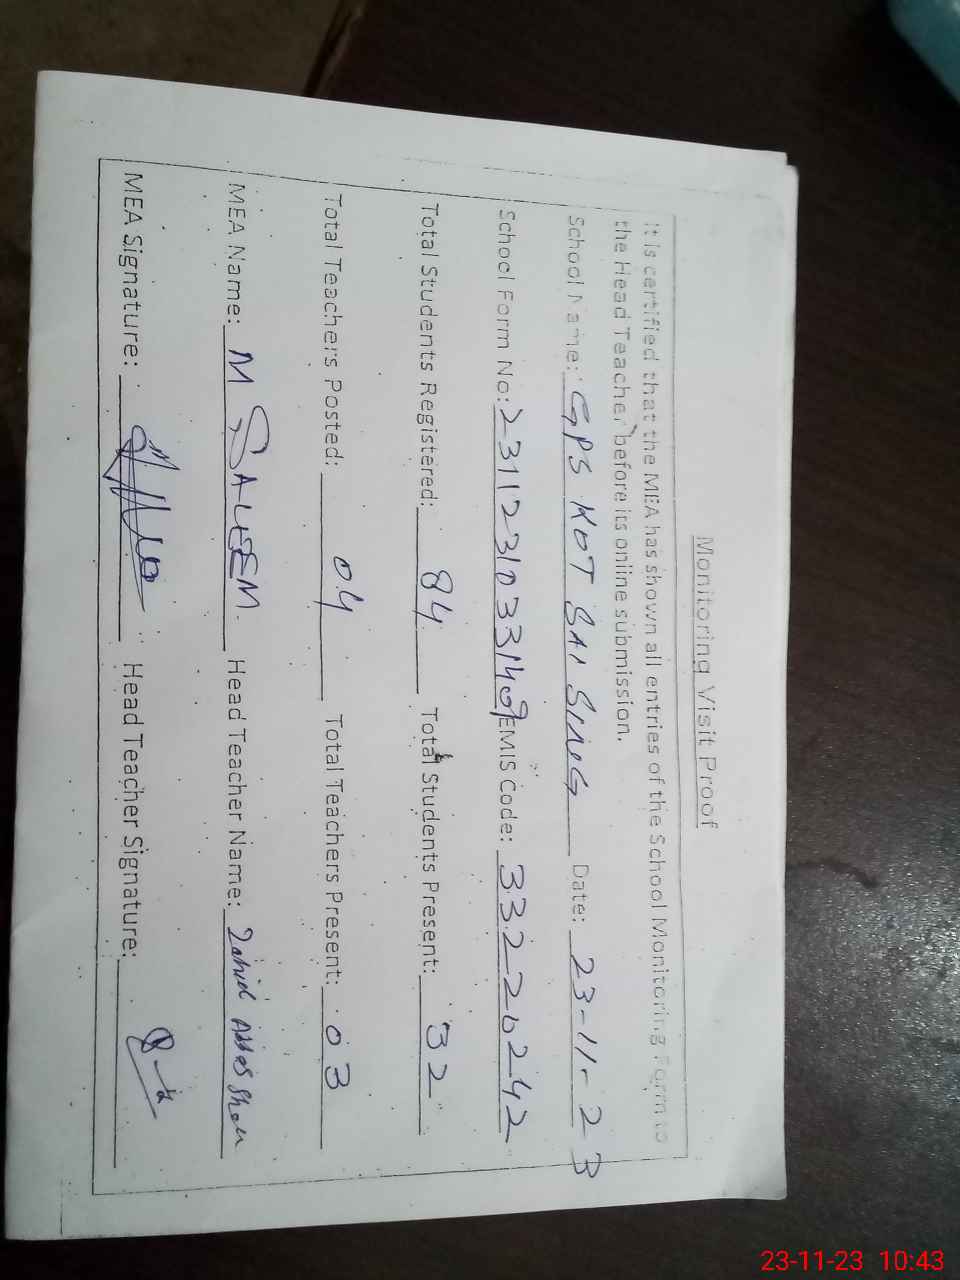 Monitoring Visit Proof
It is certified that the MEA has shown all entries of the School Monitoring Form to
the Head Teacher before its online submission.
School Name: GPS KOT SAI SING Date: 23-11-23
School Form No: EMIS Code: 33220242
Total Students Registered: 84 Total Students Present: 32
Total Teachers Posted: 04 Total Teachers Present: 03
MEA Name: M SALEEM Head Teacher Name: Zahid Abbas Shah
MEA Signature: Head Teacher Signature:
23-11-23 10:43